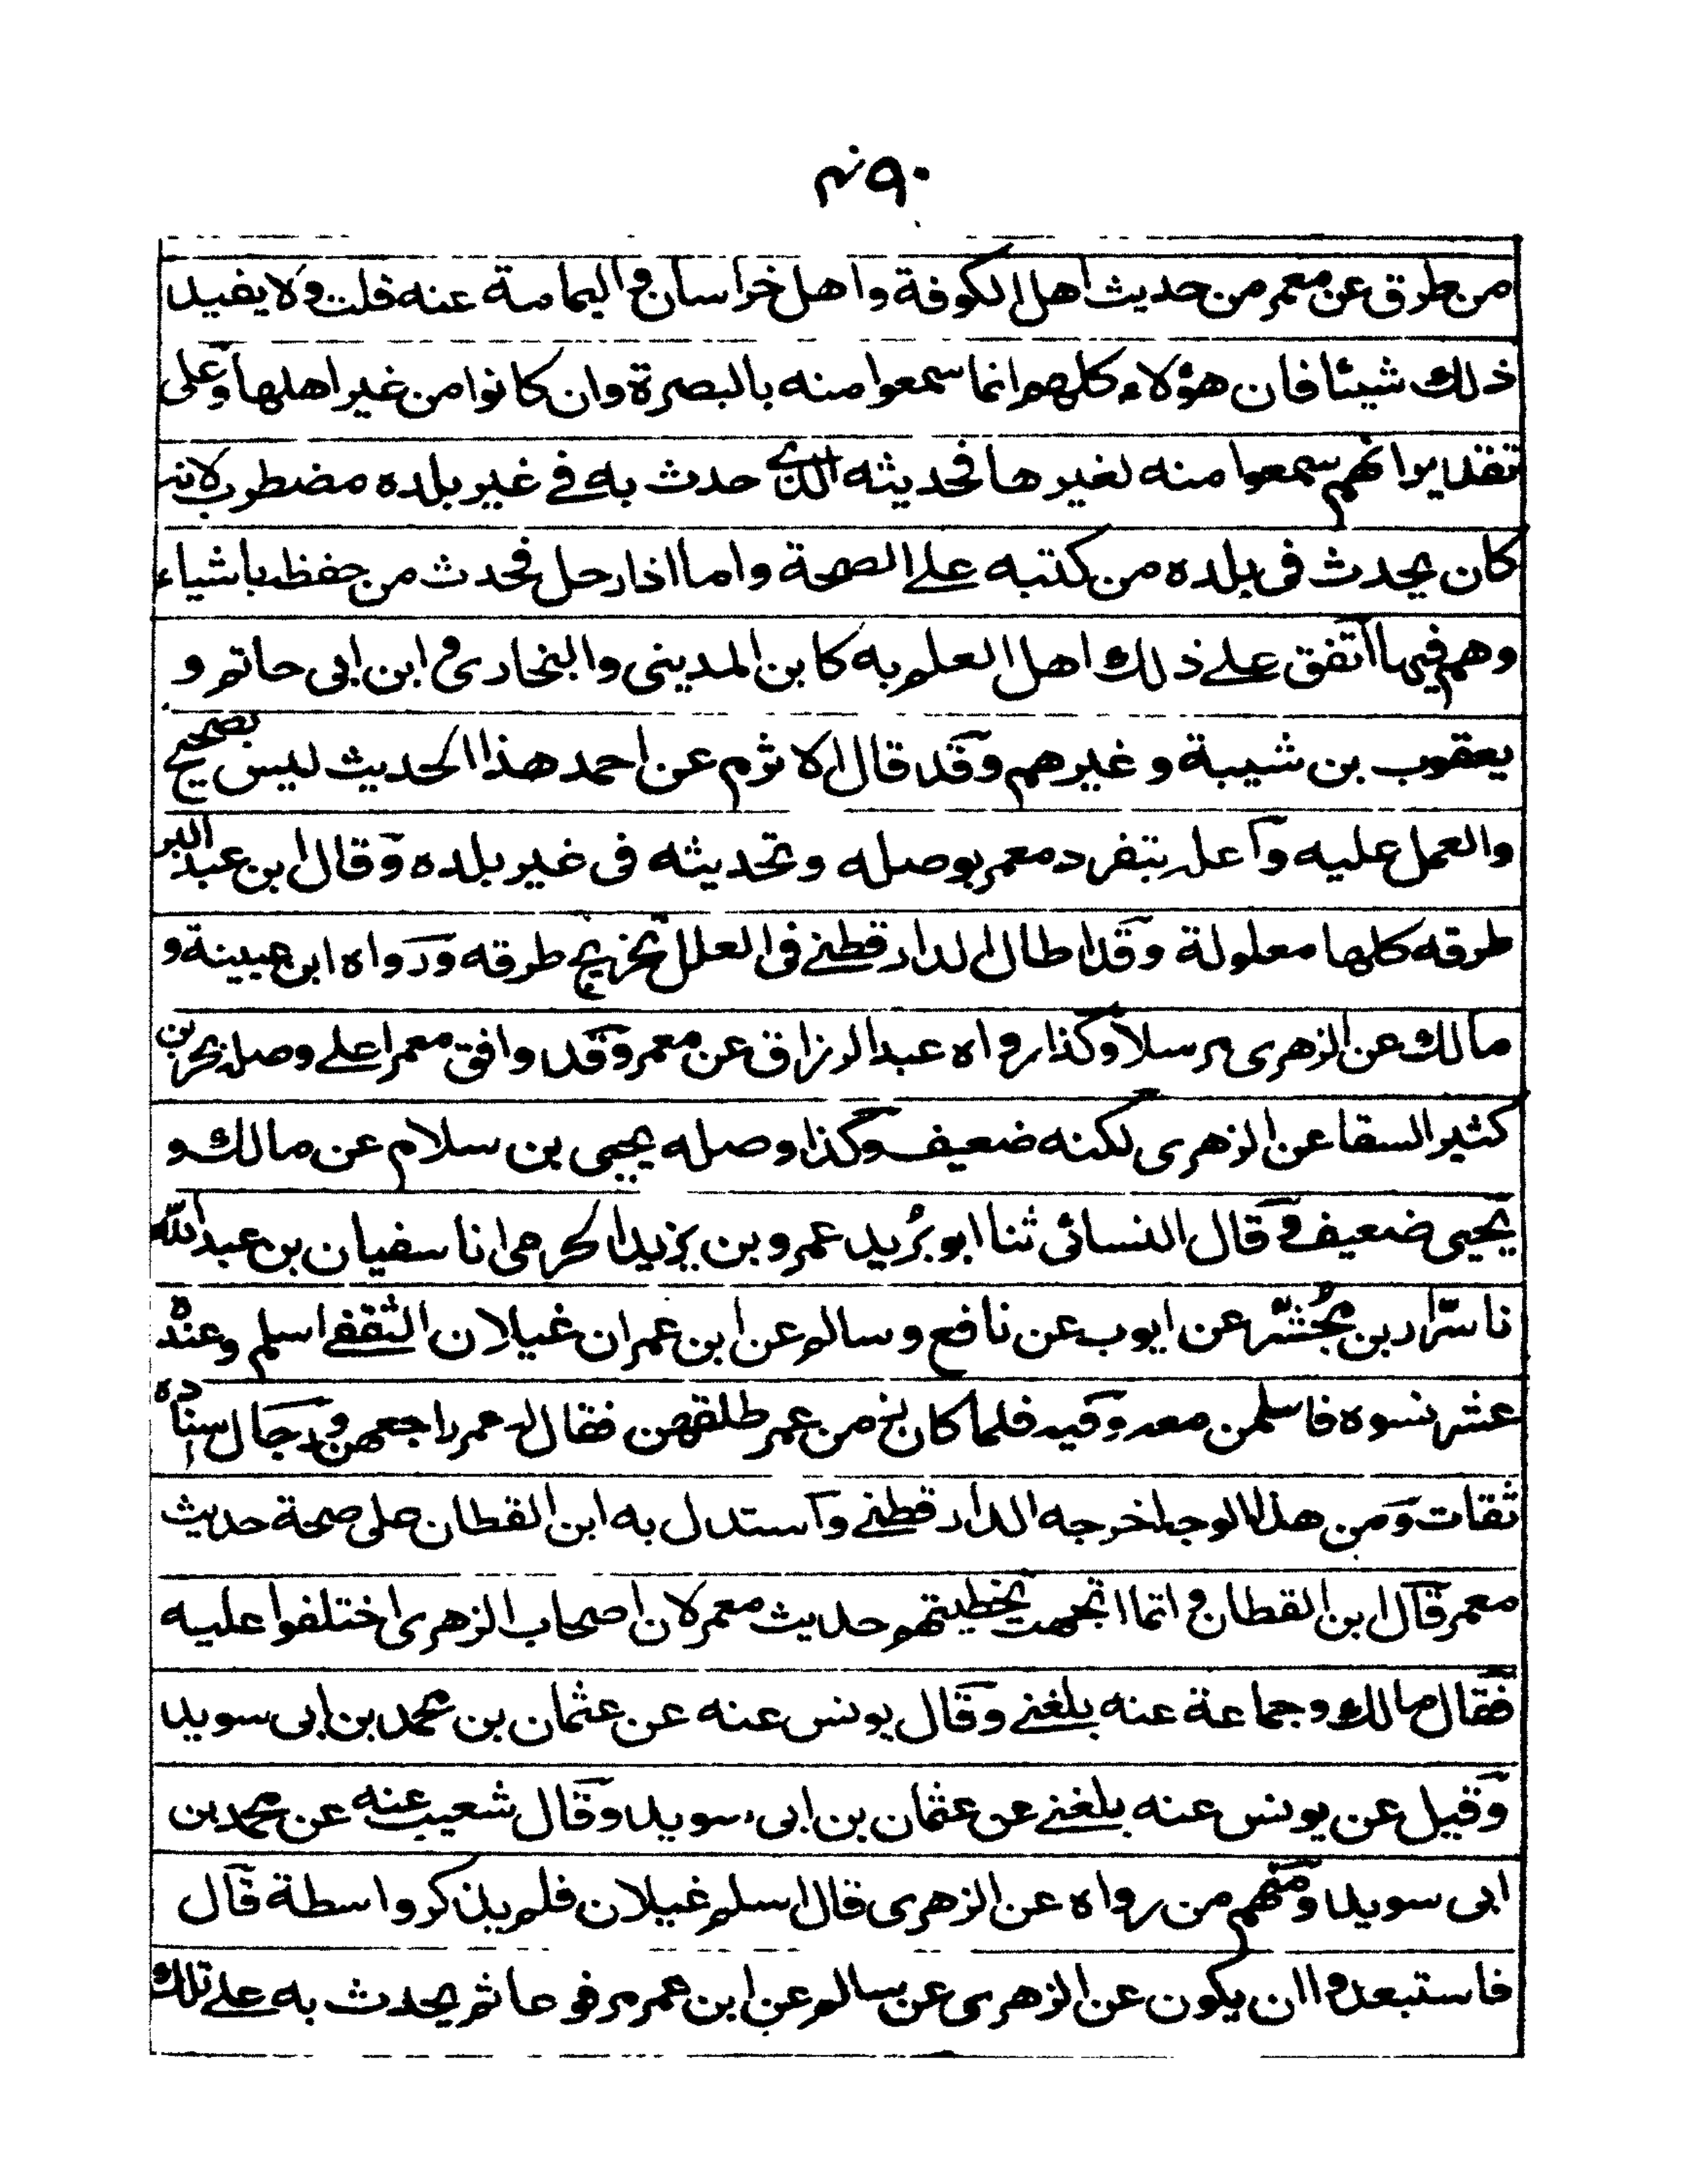 من طرق عن معمر من حديث اهل الكوفة واهل خراسان واليمامة عنه قلت ولا يفيد
ذلك شيئا فان هؤلاء كلهم انما سمعوا منه بالبصرة وان كانوا من غير اهلها وعلى
تقدير انهم سمعوا منه لغيرها فحديثه الذي حدث به في غير بلده مضطرب لانه
كان يحدث في بلده من كتبه على الصحة واما اذا رحل فحدث من حفظه باشياء
وهم فيها اتفق على ذلك اهل العلم به كابن المديني والبخاري وابن ابي حاتم و
يعقوب بن شيبة وغيرهم وقد قال الاثرم عن احمد هذا الحديث ليس بصحيح
والعمل عليه واعله بتفرد معمر بوصله وتحديثه في غير بلده وقال ابن عبد البر
طرقه كلها معلولة وقد اطال الدارقطني في العلل تخريج طرقه ورواه ابن عيينة و
مالك عن الزهري مرسلا وكذا رواه عبد الرزاق عن معمر وقد وافق معمرا على وصله بحر بن
كثير السقا عن الزهري لكنه ضعيف وكذا وصله يحيى بن سلام عن مالك و
يحيى ضعيف وقال النسائي ثنا ابو بُريد عمرو بن يزيد الجرمي انا سفيان بن عبد الله
نا سرّار بن مُجشّر عن ايوب عن نافع وسالم عن ابن عمر ان غيلان الثقفي اسلم وعنده
عشر نسوة فاسلمن معه وفيه فلما كان زمن عمر طلقهن فقال له عمر راجعهن ورجال اسناده
ثقات ومن هذا الوجه اخرجه الدارقطني واستدل به ابن القطان على صحة حديث
معمر قال ابن القطان وانما اتجهت تخطيتهم حديث معمر لان اصحاب الزهري اختلفوا عليه
فقال مالك وجماعة عنه بلغني وقال يونس عنه عن عثمان بن محمد بن ابي سويد
وقيل عن يونس عنه بلغني عن عثمان بن ابي سويد وقال شعيب عنه عن محمد بن
ابي سويد ومنهم من رواه عن الزهري قال اسلم غيلان فلم يذكر واسطة قال
فاستبعدوا ان يكون عن الزهري عن سالم عن ابن عمر مرفوعا ثم يحدث به على تلك